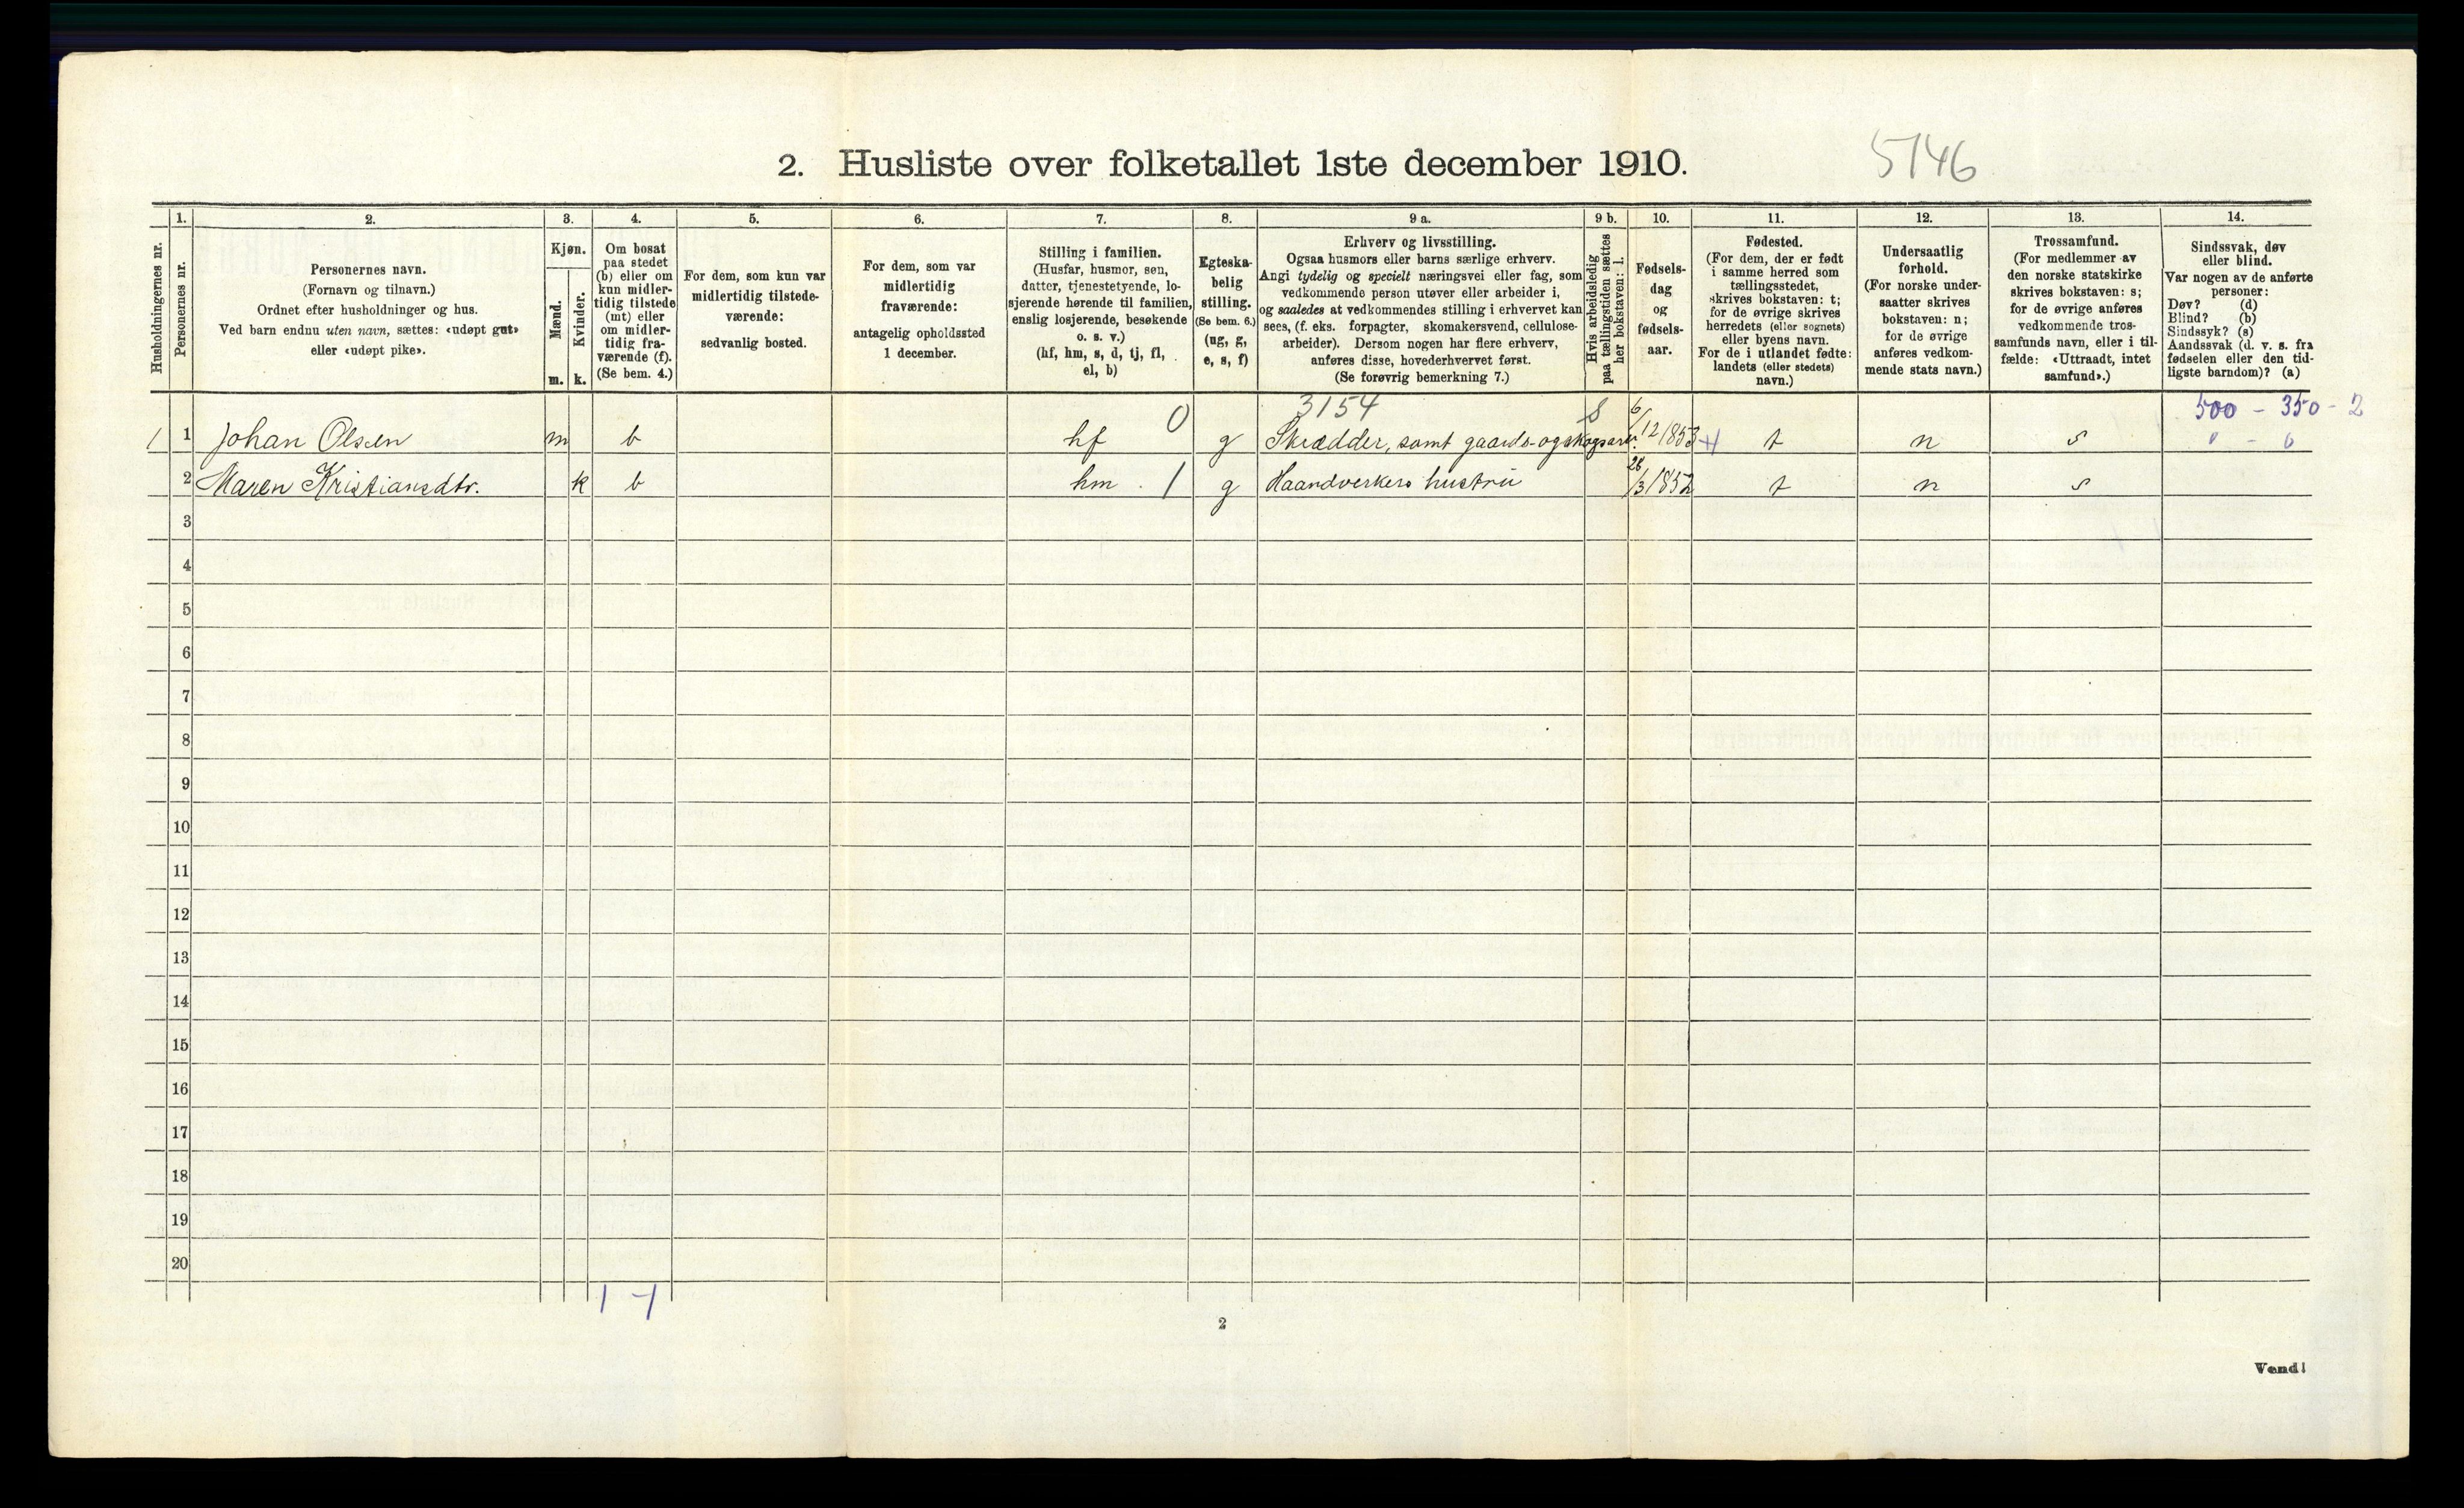 2. Husliste over folketallet 1ste december 1910.
5146
Husholdningernes nr.
1.
Personernes nr.
2.
Personernes navn.
(Fornavn og tilnavn.)
Ordnet efter husholdninger og hus.
Ved barn endnu uten navn, sættes: «udøpt gut»
eller «udøpt pike».
3.
Kjøn.
Mænd.
m.
Kvinder.
k.
4.
Om bosat
paa stedet
(b) eller om
kun midler-
tidig tilstede
(mt) eller
om midler-
tidig fra-
værende (f).
(Se bem. 4.)
5.
For dem, som kun var
midlertidig tilstede-
værende:
sedvanlig bosted.
6.
For dem, som var
midlertidig
fraværende:
antagelig opholdssted
1 december.
7.
Stilling i familien.
(Husfar, husmor, søn,
datter, tjenestetyende, lo-
sjerende hørende til familien,
enslig losjerende, besøkende
o. s. v.)
(hf, hm, s, d, tj, fl,
el, b)
8.
Egteska-
belig
stilling.
(Se bem. 6.)
(ug, g,
e, s, f)
9 a.
Erhverv og livsstilling.
Ogsaa husmors eller barns særlige erhverv.
Angi tydelig og specielt næringsvei eller fag, som
vedkommende person utøver eller arbeider i,
og saaledes at vedkommendes stilling i erhvervet kan
sees, (f. eks. forpagter, skomakersvend, cellulose-
arbeider). Dersom nogen har flere erhverv,
anføres disse, hovederhvervet først.
(Se forøvrig bemerkning 7.)
9 b.
Hvis arbeidsledig
paa tællingstiden sættes
her bokstaven: l.
10.
Fødsels-
dag
og
fødsels-
aar.
11.
Fødested.
(For dem, der er født
i samme herred som
tællingsstedet,
skrives bokstaven: t;
for de øvrige skrives
herredets (eller sognets)
eller byens navn.
For de i utlandet fødte:
landets (eller stedets)
navn.)
12.
Undersaatlig
forhold.
(For norske under-
saatter skrives
bokstaven: n;
for de øvrige
anføres vedkom-
mende stats navn.)
13.
Trossamfund.
(For medlemmer av
den norske statskirke
skrives bokstaven: s;
for de øvrige anføres
vedkommende tros-
samfunds navn, eller i til-
fælde: «Uttraadt, intet
samfund».)
14.
Sindssvak, døv
eller blind.
Var nogen av de anførte
personer:
Døv? (d)
Blind? (b)
Sindssyk? (s)
Aandssvak (d. v. s. fra
fødselen eller den tid-
ligste barndom)? (a)
3154 500 - 350 - 2
1 1 Johan Olsen m b hf 0 g Skrædder, samt gaards-ogskogsarb. S 6/12 1853 t n s 0 - 0
2 Maren Kristiansdtr. k b hm . 1 g Haandverkers hustru 28/3 1852 t n s
3
4
5
6
7
8
9
10
11
12
13
14
15
16
17
18
19
20
1 - 1
2
Vend!